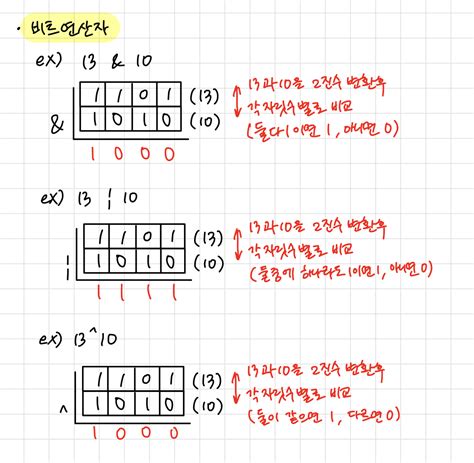 · 비트연산자
ex) 13 & 10
1 1 0 1 (13)
& 1 0 1 0 (10)
1 0 0 0
13과 10을 2진수 변환후
각 자릿수 별로 비교
(둘다 1 이면 1, 아니면 0)
ex) 13 ¦ 10
1 1 0 1 (13)
¦ 1 0 1 0 (10)
1 1 1 1
13과 10을 2진수 변환후
각 자릿수 별로 비교
(둘중에 하나라도 1이면 1, 아니면 0)
ex) 13 ^ 10
1 1 0 1 (13)
^ 1 0 1 0 (10)
1 0 0 0
13과 10을 2진수 변환후
각 자릿수 별로 비교
(둘이 같으면 1, 다르면 0)